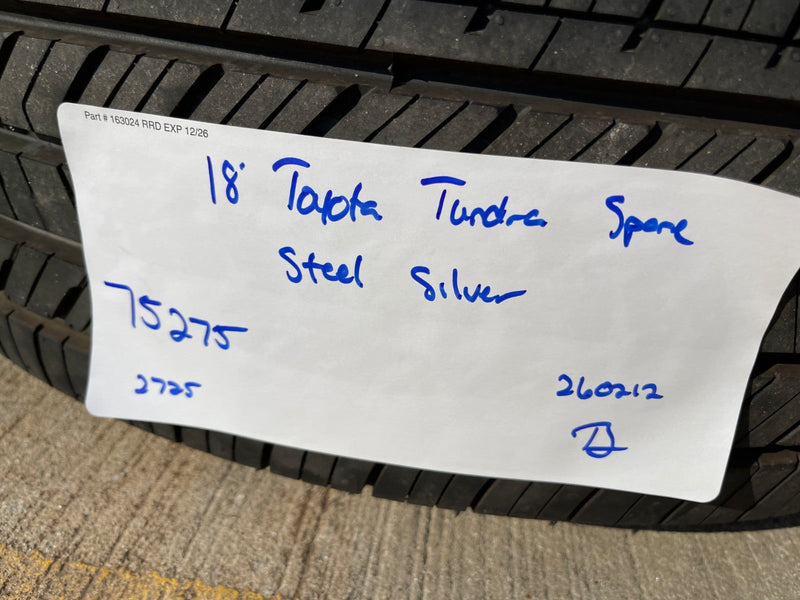 Part # 163024 RRD EXP 12/26
18" Toyota Tundra Spare
Steel Silver
75275
2725
260212